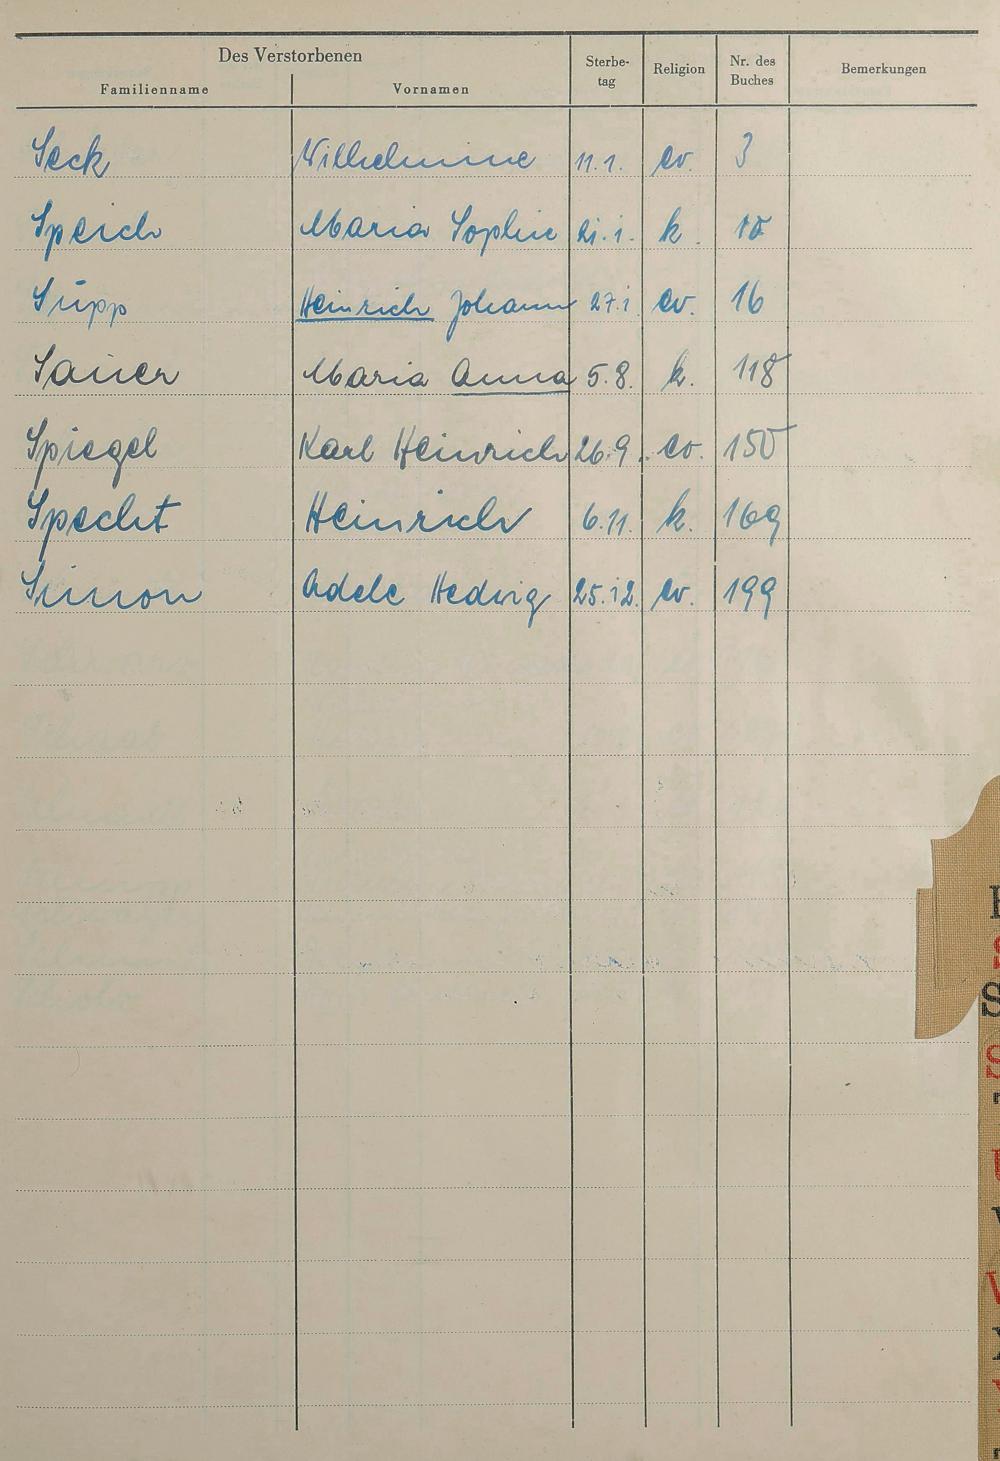 Des Verstorbenen Sterbe- Religion Nr. des Bemerkungen
Familienname Vornamen tag Buches
Seck Wilhelmine 11.1. ev. 3
Speich Maria Sophie 21.1. k.
Supp Heinrich Johann 27.1 ev. 16
Sauer Maria Anna 5.8. k. 118
Spiegel Karl Heinrich 26.9. ev. 150
Specht Heinrich 6.11. k. 169
Simon Adele Hedwig 25.12. ev. 199
S
S